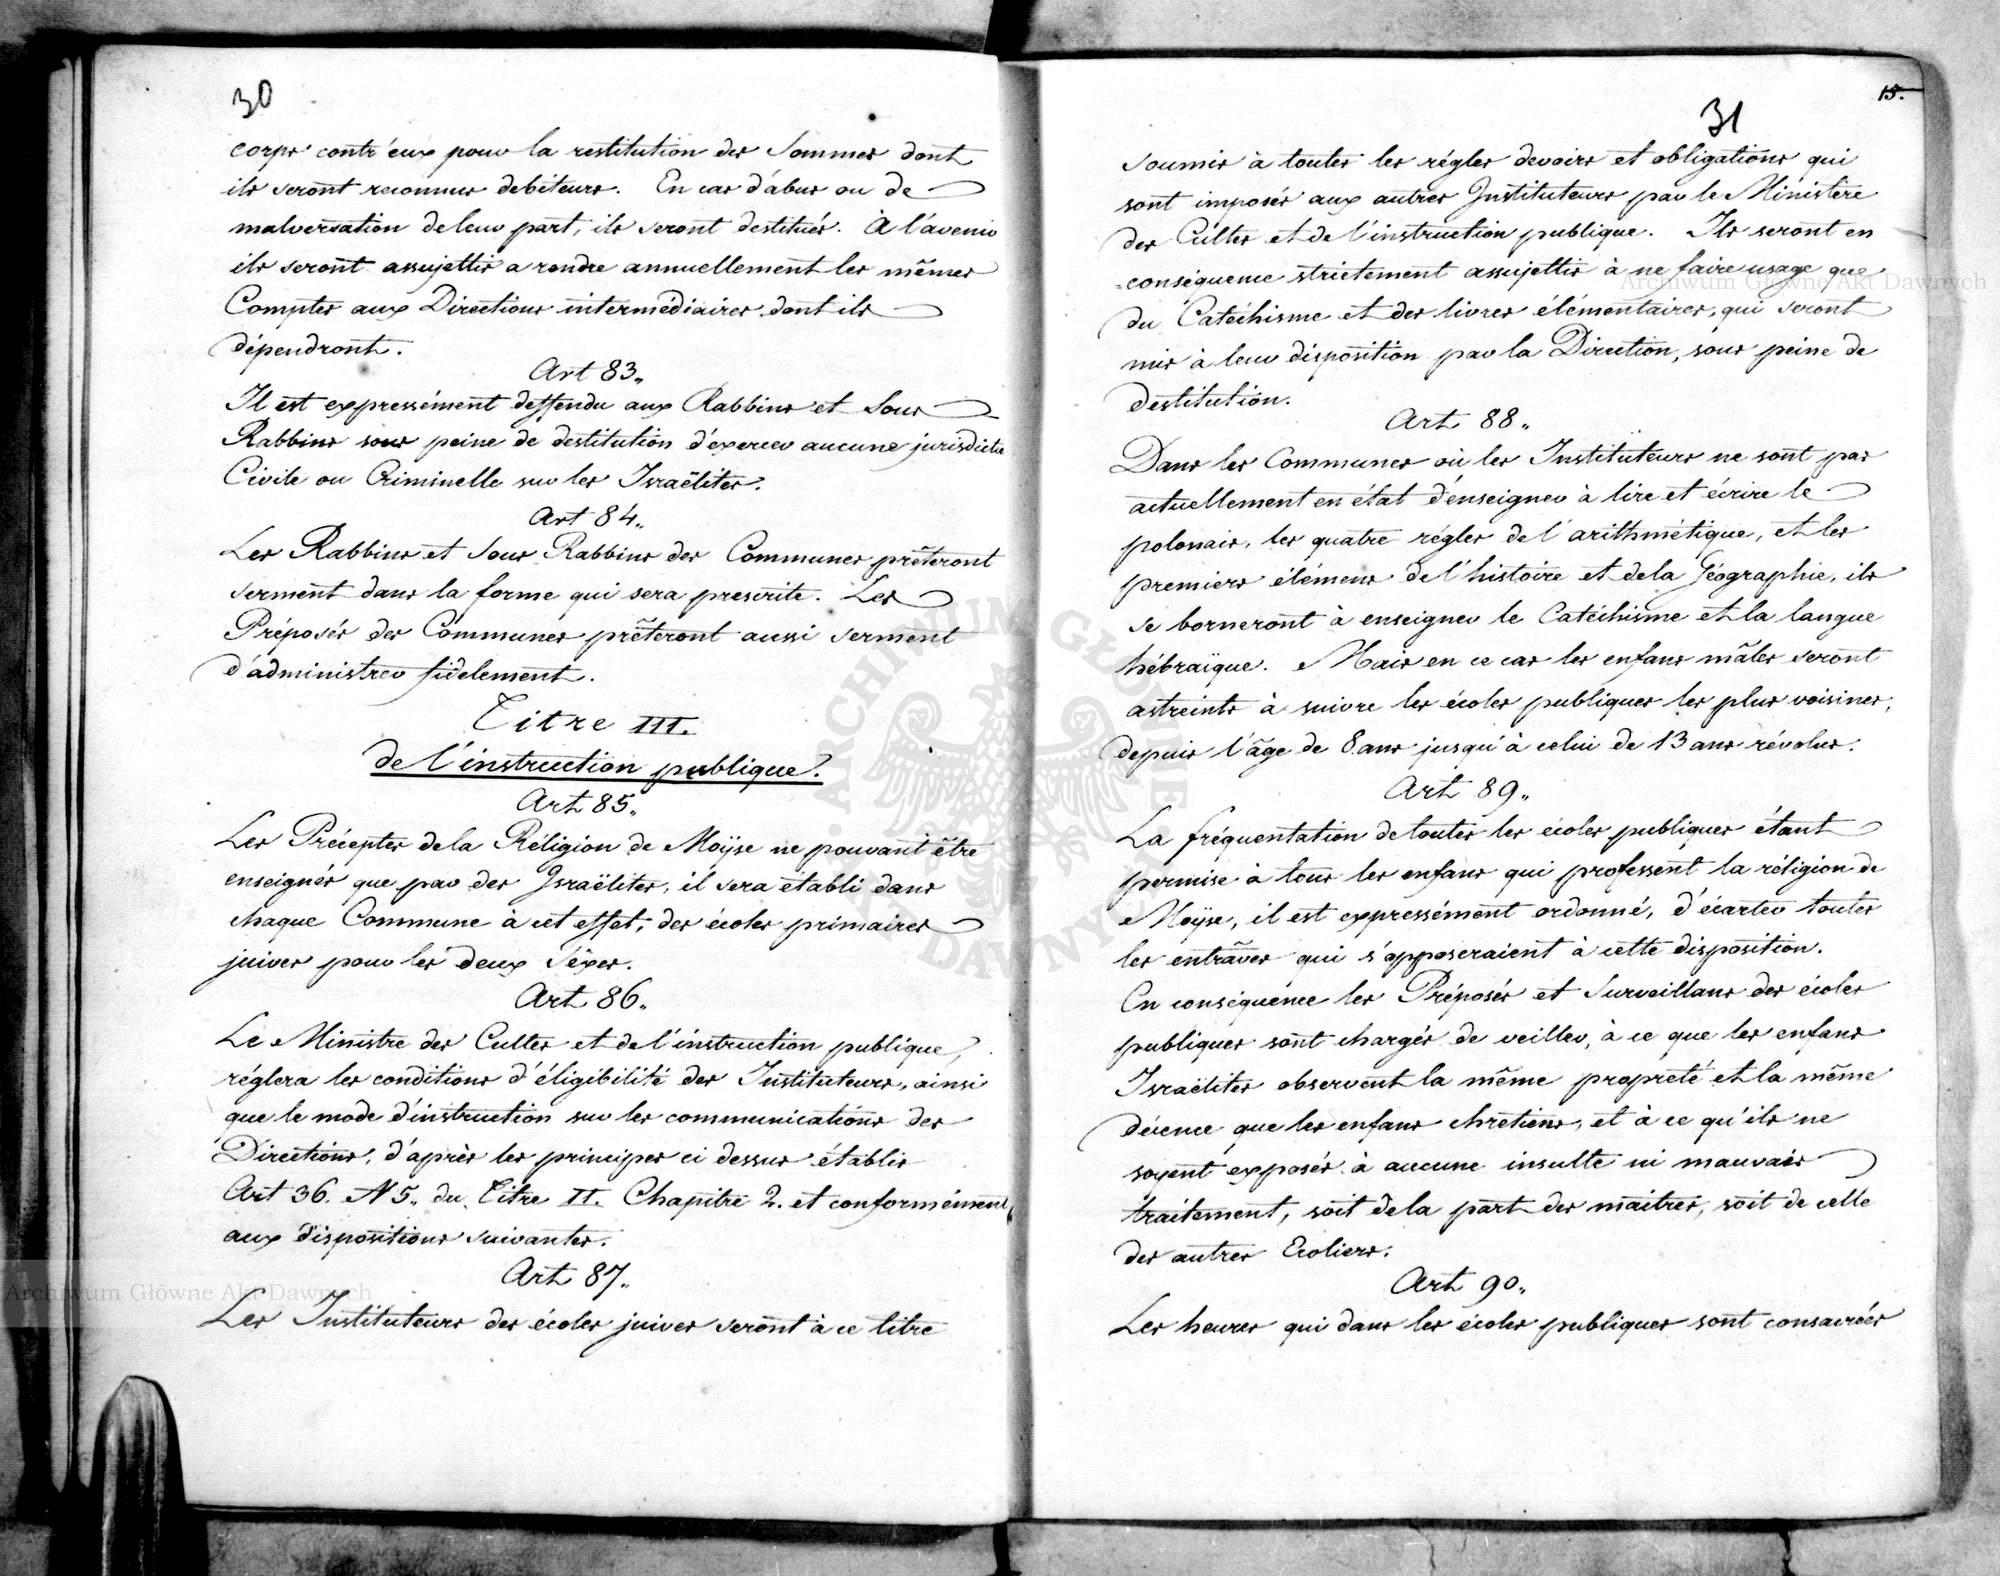 30
corps contr'eux pour la restitution des Sommes dont
ils seront reconnus debiteurs. En cas d'abus ou de
malversation de leur part, ils seront destitués. A l'avenir
ils seront assujettis a rendre annuellement les mêmes
Comptes aux Directions intermédiaires dont ils
dépendront.
Art 83.
Il est expressément deffendu aux Rabbins et Sous
Rabbins sous peine de destitution d'éxercer aucune jurisdictio
Civile ou Criminelle sur les Israëlites.
Art 84.
Les Rabbins et Sous Rabbins des Communes prêteront
serment dans la forme qui sera prescrite. Les
Préposés des Communes prêteront aussi serment
d'administrer fidelement.
Titre III.
de l'instruction publique.
Art 85.
Les Précéptes de la Réligion de Moÿse ne pouvant être
enseignés que par des Israëlites, il sera établi dans
chaque Commune à cet effet, des écoles primaires
juives pour les deux Séxes.
Art 86.
Le Ministre des Cultes et de l'instruction publique,
réglera les conditions d'éligibilité des Instituteurs, ainsi
que le mode d'instruction sur les communications des
Directions, d'après les principes ci dessus établis
Art 36. N 5. du Titre II. Chapitre 2. et conformément
aux dispositions suivantes.
Art 87.
Les Instituteurs des écoles juives seront à ce titre
15.
31
soumis à toutes les régles devoirs et obligations qui
sont imposés aux autres Instituteurs par le Ministère
des Cultes et de l'instruction publique. Ils seront en
conséquence strictement assujettis à ne faire usage que
du Catéchisme et des livres élémentaires, qui seront
mis à leur disposition par la Direction, sous peine de
destitution.
Art 88.
Dans les Communes où les Instituteurs ne sont pas
actuellement en état d'enseigner à lire et écrire le
polonais, les quatre régles de l'arithmétique, et les
premiers élémens de l'histoire et de la Géographie, ils
se borneront à enseigner le Catéchisme et la langue
hébraïque. Mais en ce cas les enfans mâles seront
astreints à suivre les écoles publiques les plus voisines,
depuis l'âge de 8 ans jusqu'à celui de 13 ans révolus.
Art 89.
La fréquentation de toutes les écoles publiques étant
permise à tous les enfans qui professent la réligion de
Moÿse, il est expressément ordonné, d'écarter toutes
les entrâves qui s'opposeraient à cette disposition.
En conséquence les Préposés et Surveillans des écoles
publiques sont chargés de veiller, à ce que les enfans
Israëlites observent la même propreté et la même
décence que les enfans chretiens, et à ce qu'ils ne
soyent exposés à aucune insulte ni mauvais
traitement, soit de la part des maitres, soit de celle
des autres Ecoliers.
Art 90.
Les heures qui dans les écoles publiques sont consacrées
Archiwum Główne Akt Dawnych
Archiwum Główne Akt Dawnych
ARCHIWUM GŁÓWNE AKT DAWNYCH